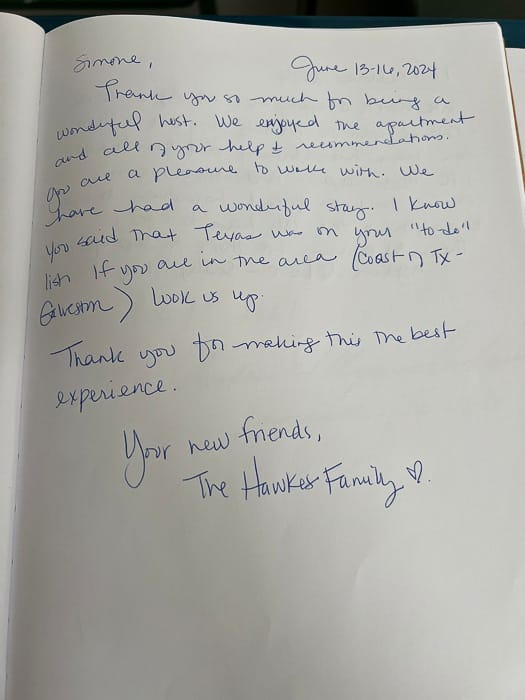 Simone,
June 13-16, 2024
Thank you so much for being a
wonderful host. We enjoyed the apartment
and all of your help & recommendations.
You are a pleasure to work with. We
have had a wonderful stay. I know
you said that Texas was on your "to-do"
list. If you are in the area (coast of TX -
Galveston) look us up.
Thank you for making this the best
experience.
Your new friends,
The Hawkes Family ♡.